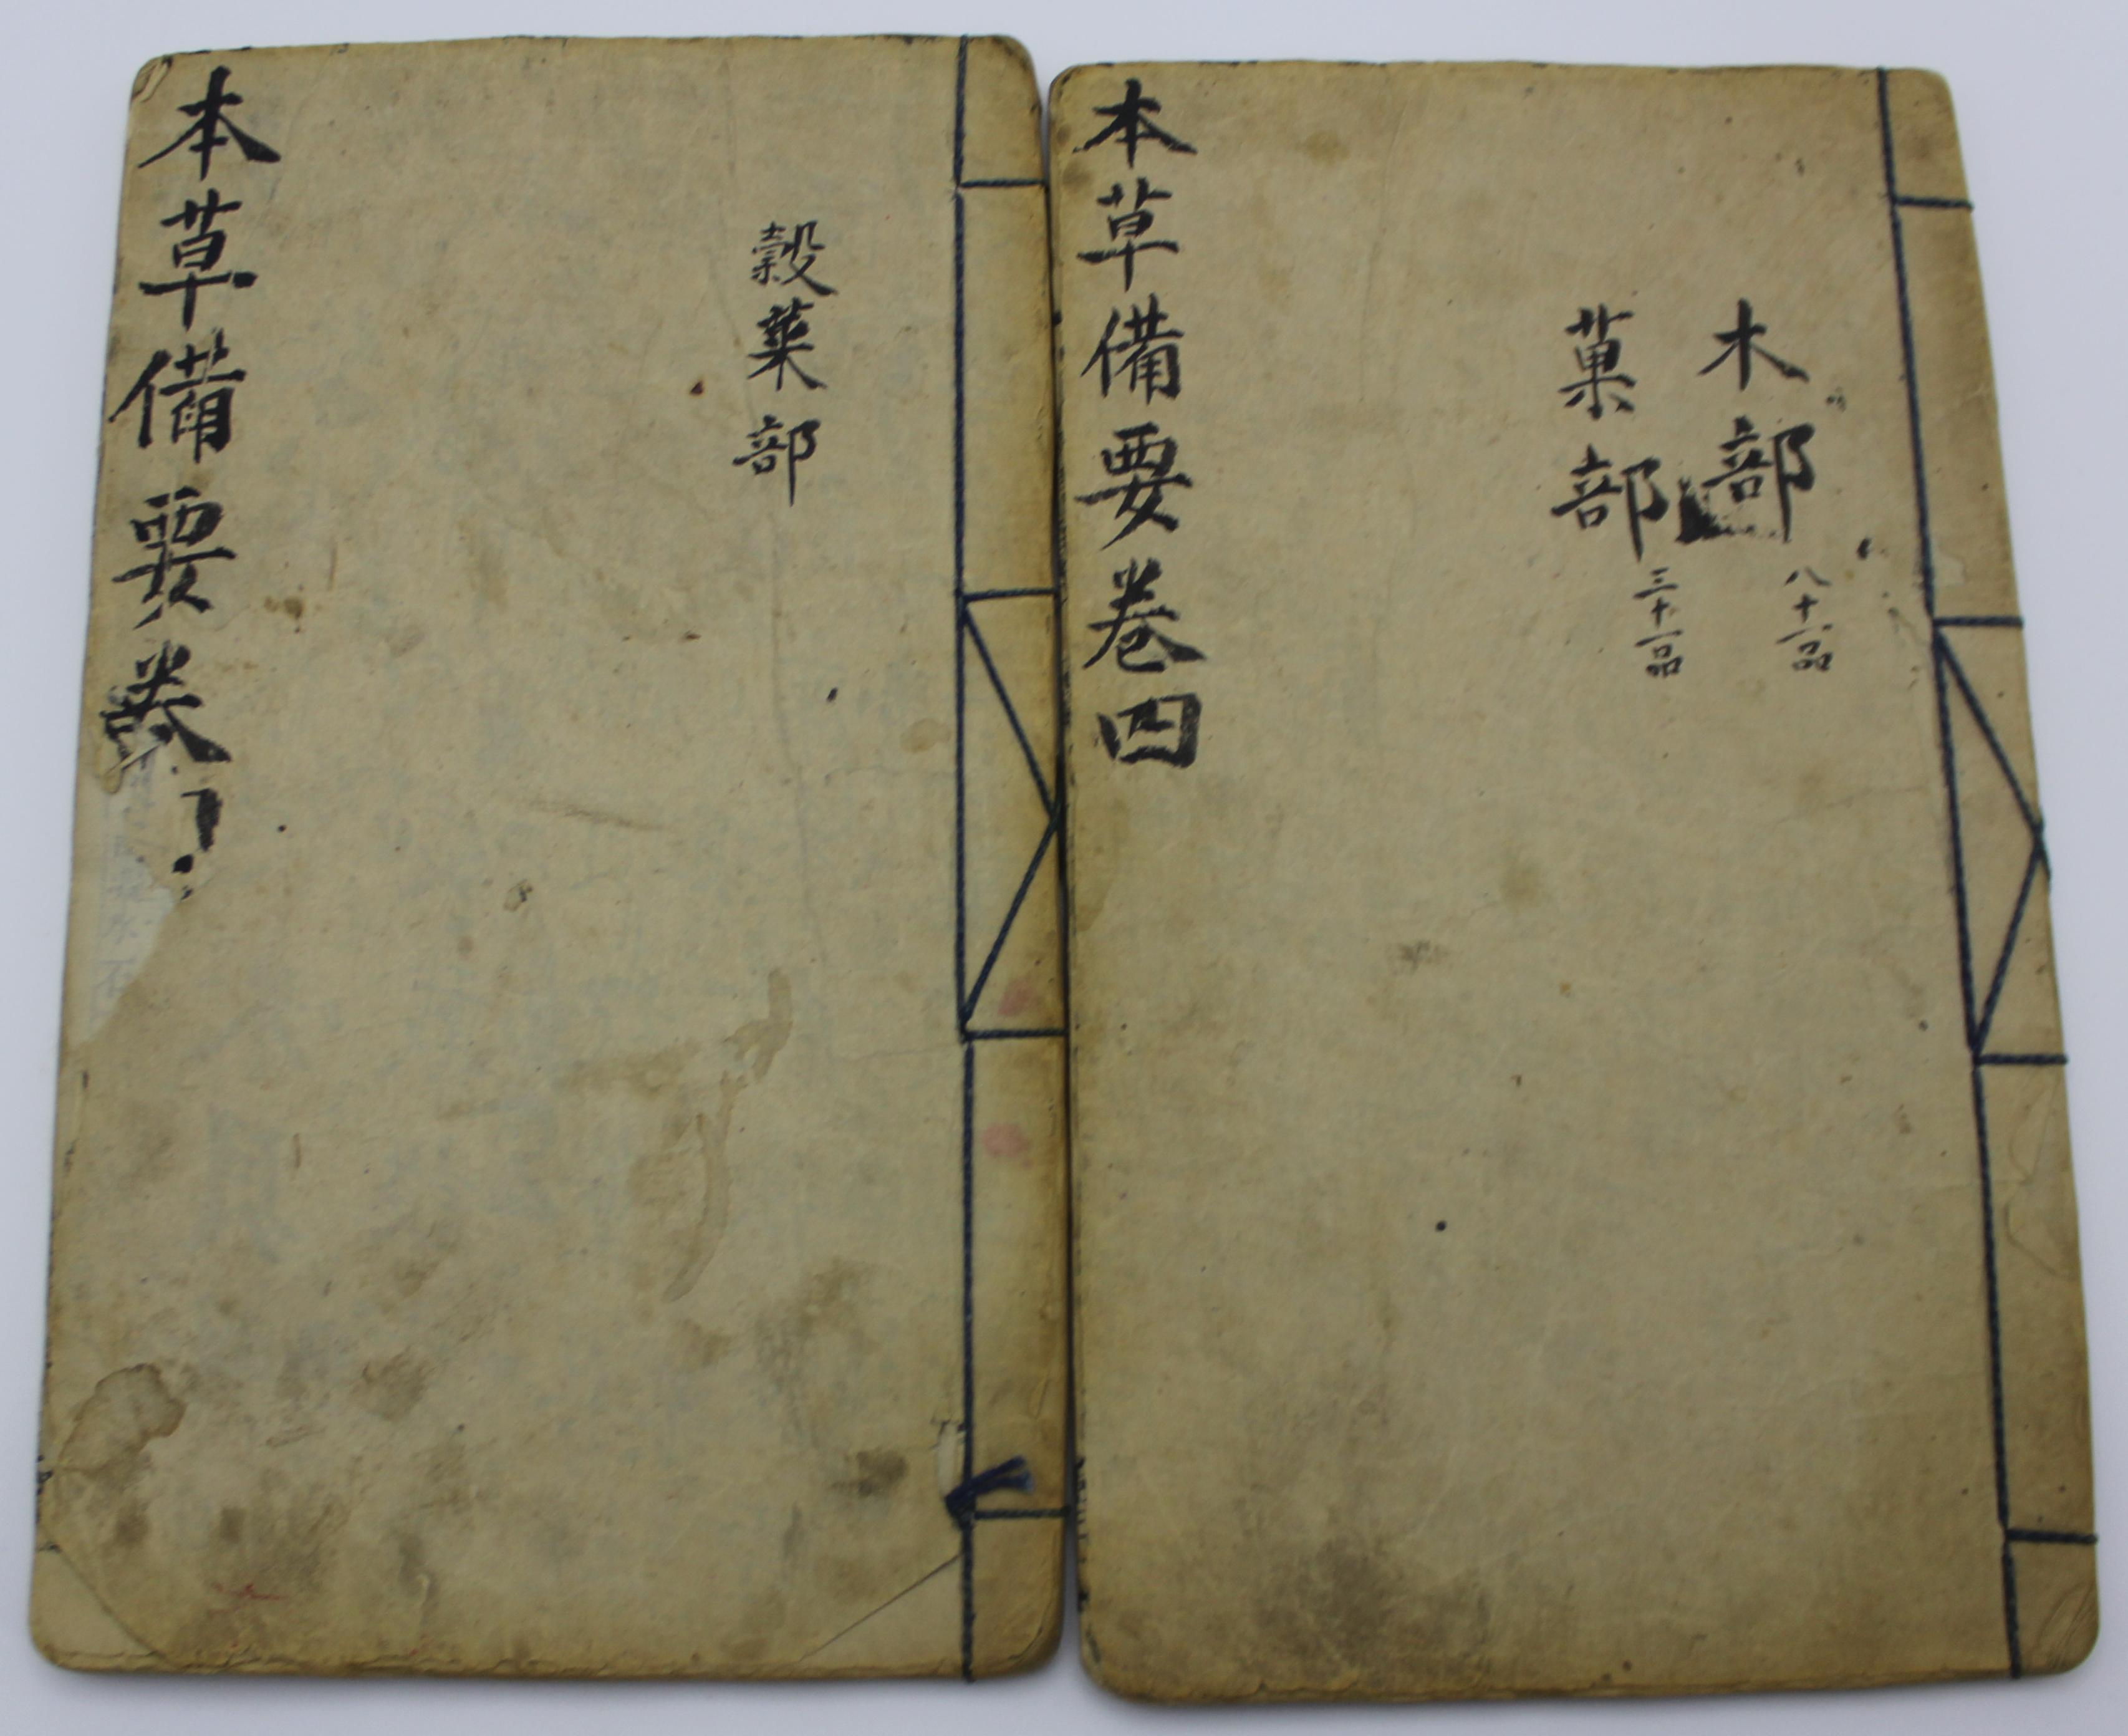 木部八十一品
菓部三十一品
本草備要卷四
穀菜部
本草備要卷